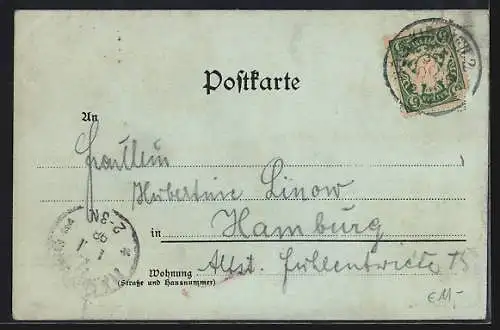 Postkarte
An
Fräulein
Hubertine Linow
in Hamburg
Wohnung
(Straße und Hausnummer)
Altst. Fuhlentwiete 15
€ 11,-